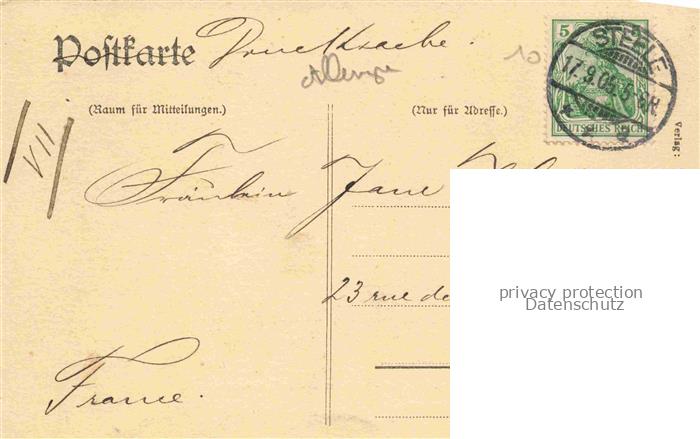 Postkarte Drucksache.
5
STEELE
17.9.05.5-6N.
DEUTSCHES REICH
(Raum für Mitteilungen.)
(Nur für Adresse.)
Verlag:
VII
Fräulein Jane
23 rue de
France.
privacy protection
Datenschutz